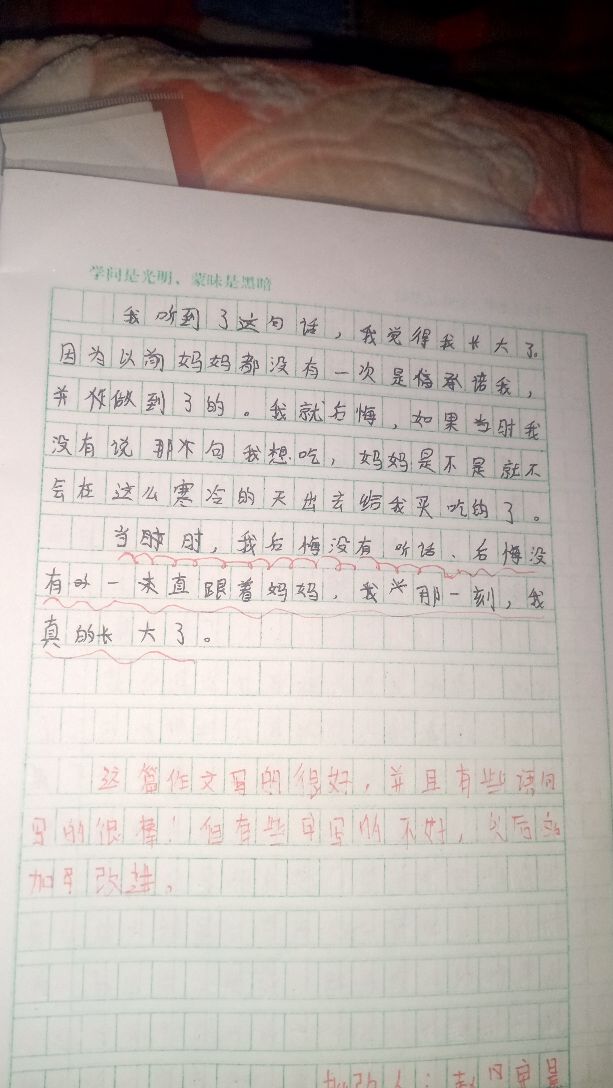 学问是光明，蒙昧是黑暗
我听到了这句话，我觉得我长大了。
因为以前妈妈都没有一次是信承诺我，
并做到了的。我就后悔，如果当时我
没有说那个句我想吃，妈妈是不是就不
会在这么寒冷的天出去给我买吃的了。
当时，我后悔没有听话、后悔没
有一直跟着妈妈，我那一刻，我
真的长大了。
这篇作文写的很好，并且有些语句
写的很棒！但有些字写的不好，以后
加以改进。